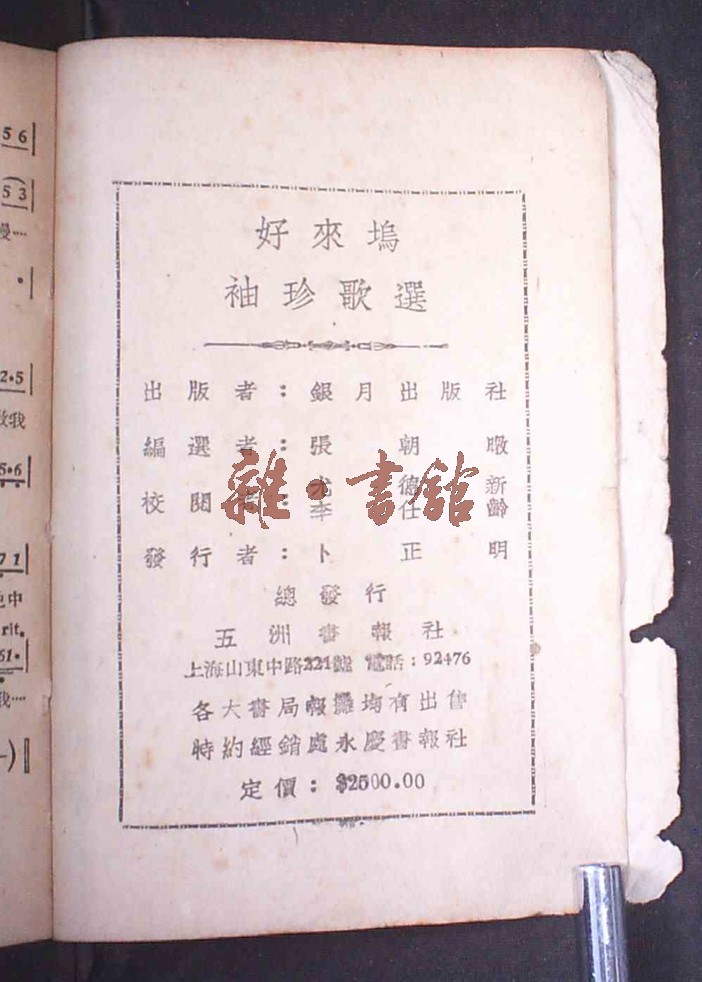 56
53
2·5
我
5·6
71
中
rit.
61·
我····
好來塢
袖珍歌選
出版者：銀月出版社
編選者：張朝暾
校閱者：尤德新
李任齡
發行者：卜正明
總發行
五洲書報社
上海山東中路221號 電話：92476
各大書局報攤均有出售
特約經銷處永慶書報社
定價：$2500.00
雜·書館